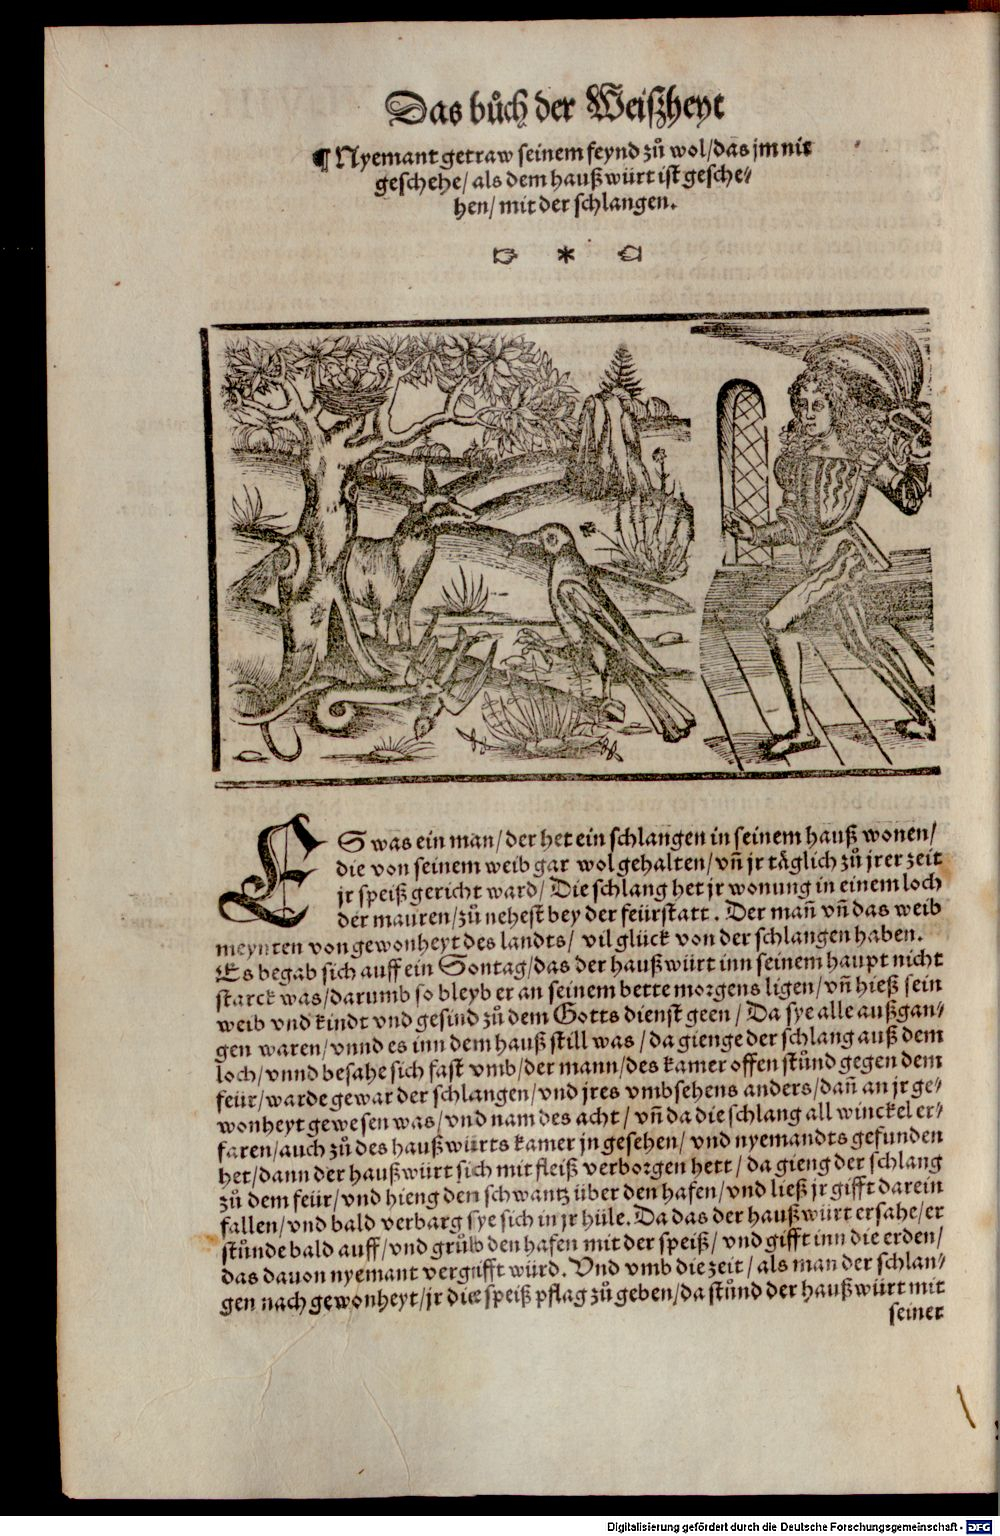 Das bůch der Weiſzheyt
¶ Nyemant getraw ſeinem feynd zů wol/das jm nit
geſchehe/ als dem hauß würt iſt geſche⸗
hen/ mit der ſchlangen.
☞ * ☜
ES was ein man/ der het ein ſchlangen in ſeinem hauß wonen/
die von ſeinem weib gar wol gehalten/ vñ jr täglich zů jrer zeit
jr ſpeiß gericht ward/ Die ſchlang het jr wonung in einem loch
der mauren/ zů neheſt bey der feürſtatt. Der mañ vñ das weib
meynten von gewonheyt des landts/ vil glück von der ſchlangen haben.
Es begab ſich auff ein Sontag/das der hauß würt inn ſeinem haupt nicht
ſtarck was/darumb ſo bleyb er an ſeinem bette morgens ligen/ vñ hieß ſein
weib vnd kindt vnd geſind zů dem Gotts dienſt geen/ Da ſye alle außgan⸗
gen waren/ vnnd es inn dem hauß ſtill was/ da gienge der ſchlang auß dem
loch/ vnnd beſahe ſich faſt vmb/ der mann/ des kamer offen ſtůnd gegen dem
feür/ warde gewar der ſchlangen/ vnd jres vmbſehens anders/ dañ an jr ge⸗
wonheyt geweſen was/ vnd nam des acht/ vñ da die ſchlang all winckel er⸗
faren/ auch zů des hauß würts kamer jn geſehen/ vnd nyemandts gefunden
het/ dann der hauß würt ſich mit fleiß verborgen hett/ da gieng der ſchlang
zů dem feür/ vnd hieng den ſchwantz über den hafen/ vnd ließ jr gifft darein
fallen/ vnd bald verbarg ſye ſich in jr hüle. Da das der hauß würt erſahe/ er
ſtůnde bald auff/ vnd grůb den hafen mit der ſpeiß/ vnd gifft inn die erden/
das dauon nyemant vergifft würd. Vnd vmb die zeit/ als man der ſchlan⸗
gen nach gewonheyt/ jr die ſpeiß pflag zů geben/ da ſtůnd der hauß würt mit
ſeiner
Digitalisierung gefördert durch die Deutsche Forschungsgemeinschaft - DFG